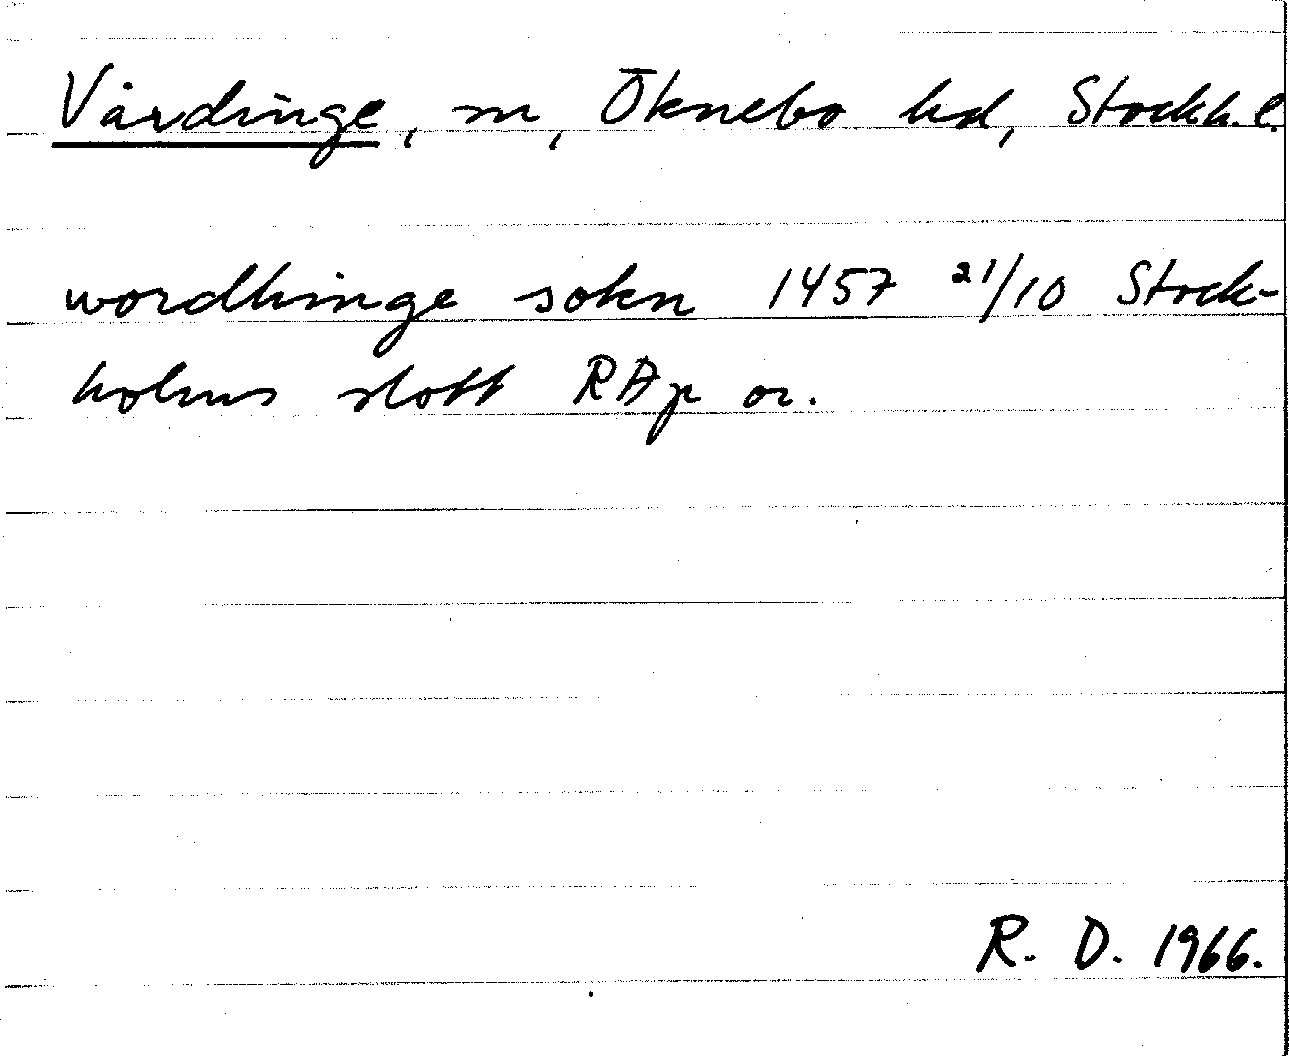 Vårdinge, sn, Öknebo hd, Stockh. l.
wordhinge sokn 1457 21/10 Stock-
holms slott RAp or.
R. D. 1966.